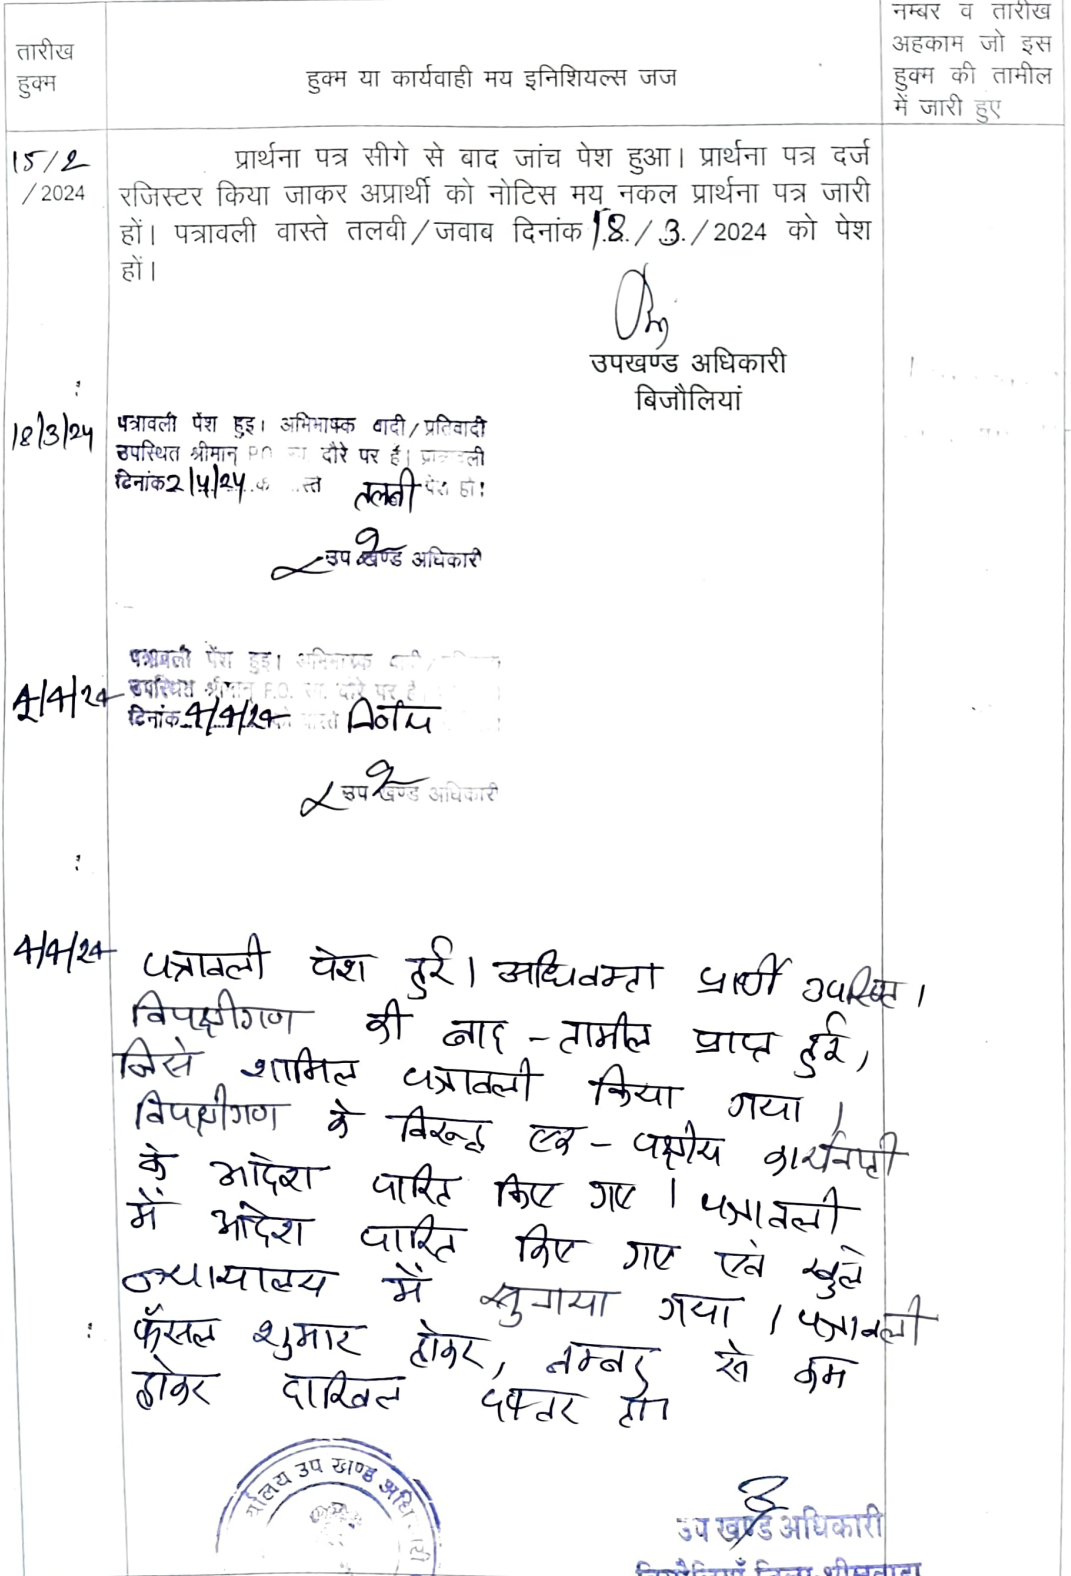 तारीख
हुक्म
हुक्म या कार्यवाही मय इनिशियल्स जज
नम्बर व तारीख
अहकाम जो इस
हुक्म की तामील
में जारी हुए
15/2
/2024
प्रार्थना पत्र सीगे से बाद जांच पेश हुआ। प्रार्थना पत्र दर्ज
रजिस्टर किया जाकर अप्रार्थी को नोटिस मय नकल प्रार्थना पत्र जारी
हों। पत्रावली वास्ते तलवी/जवाब दिनांक 18./3./2024 को पेश
हों।
उपखण्ड अधिकारी
बिजौलियां
18/3/24
पत्रावली पेश हुइ। अभिभाषक वादी/प्रतिवादी
उपस्थित श्रीमान् P.O. सा. दौरे पर है। पत्रावली
दिनांक 2/4/24 तलबी पेश हो।
उप खण्ड अधिकारी
4/4/24
पत्रावली पेश हुइ। अभिभाषक वादी/
उपस्थित श्रीमान् P.O. सा. दौरे पर है।
दिनांक 4/4/24 निर्णय
उप खण्ड अधिकारी
4/4/24
पत्रावली पेश हुई। अधिवक्ता प्रार्थी उपस्थित।
विपक्षीगण की बाद-तामील प्राप्त हुई,
जिसे शामिल पत्रावली किया गया।
विपक्षीगण के विरूद्ध एक-पक्षीय कार्यवाही
के आदेश पारित किए गए। पत्रावली
में आदेश पारित किए गए एवं खुले
न्यायालय में सुनाया गया। पत्रावली
फैसल शुमार होकर, नम्बर से कम
होकर दाखिल दफ्तर हो।
र्यालय उप खण्ड अधि
उप खण्ड अधिकारी
बिजौलियाँ जिला-भीलवाड़ा